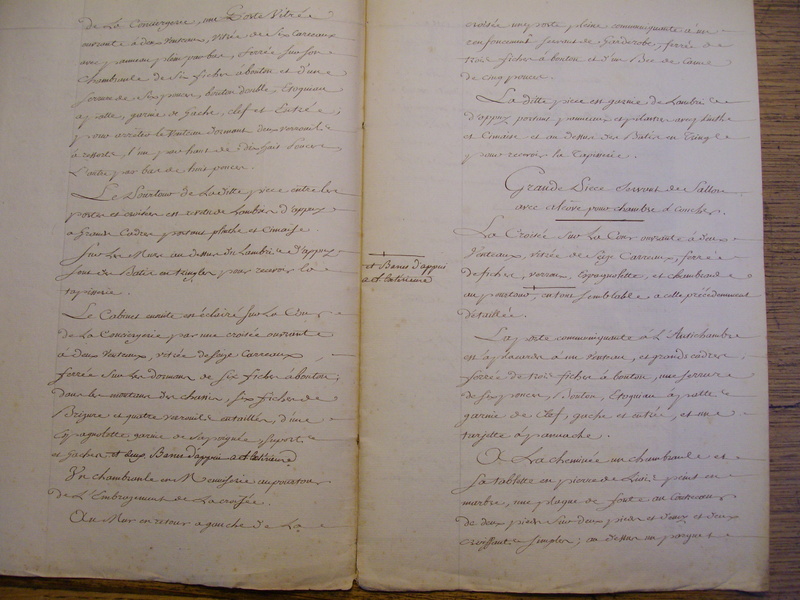 de La Conciergerie, une Porte Vitrée
ouvrante à deux Venteaux, vitrée de Six Carreaux
avec panneau plein par bas, ferrée sur son
chambranle de Six fiches à bouton et d'une
Serrure de Six pouces, bouton double, Etoquiau
à patte, garnie de Gache, Clef et Entrée;
pour arrêter le Venteau dormant deux verrouils
à ressorts, l'un par haut de
L'autre par bas de huit pouces.
Le Pourtour de La ditte piece entre les
portes et croisée est revetu de Lambris d'appuy
à Grands Cadres portant plinthe et Cimaise.
Sur les Murs au dessus du Lambris d'appuy
sont des Batis en tringles pour recevoir la
tapisserie.
Le Cabinet ensuite est éclairé Sur La Cour
de La Conciergerie par une croisée ouvrante
à Deux Venteaux, vitrée de Seize Carreaux
ferrée Sur les dormans de Six fiches à bouton,
dans les montans des chassis, Six fiches de
Brisure et quatre verrouils entaillés, d'une
Espagnolette garnie de Sa poignée, Suports
et Gaches et deux Barres d'appui a l'exterieure
Un chambranle en Menuiserie au pourtour
de L'Embrazement de La croisée.
Au Mur en retour a gauche de La
croisée une porte pleine communiquante à un
renfoncement servant de Garderobe, ferrée de
trois fiches à bouton et d'un Bec de Cane
de cinq pouces.
La ditte piece est garnie de Lambris
d'appuy portant panneaux et pilastres avec plinthe
et Cimaise et au dessus des Batis en Tringles
pour recevoir la Tapisserie.
Grande Piece Servant de Sallon
avec alcove pour chambre à coucher.
La Croisée Sur La Cour ouvrante à deux
Venteaux, vitrée de Seize Carreaux, ferrée
de fiches, verroux, Espagnolette, et chambranle
au pourtour, en tout semblable à celle précédemment
détaillée.
et Barres d'appui
a l'exterieure
La porte communiquante à L'Antichambre
est à placard à un Venteau, et grands cadres
ferrée de trois fiches à bouton, une serrure
de Six pouces, Bouton, Etoquiau à patte
garnie de Clef, gache et entrée, et une
targette à panache.
A La cheminée un chambranle et
sa tablette en pierre de Liais peint en
marbre, une plaque de fonte au Contrecoeur
de deux pieds sur deux pieds et deux
croissants simples; au dessus un parquet